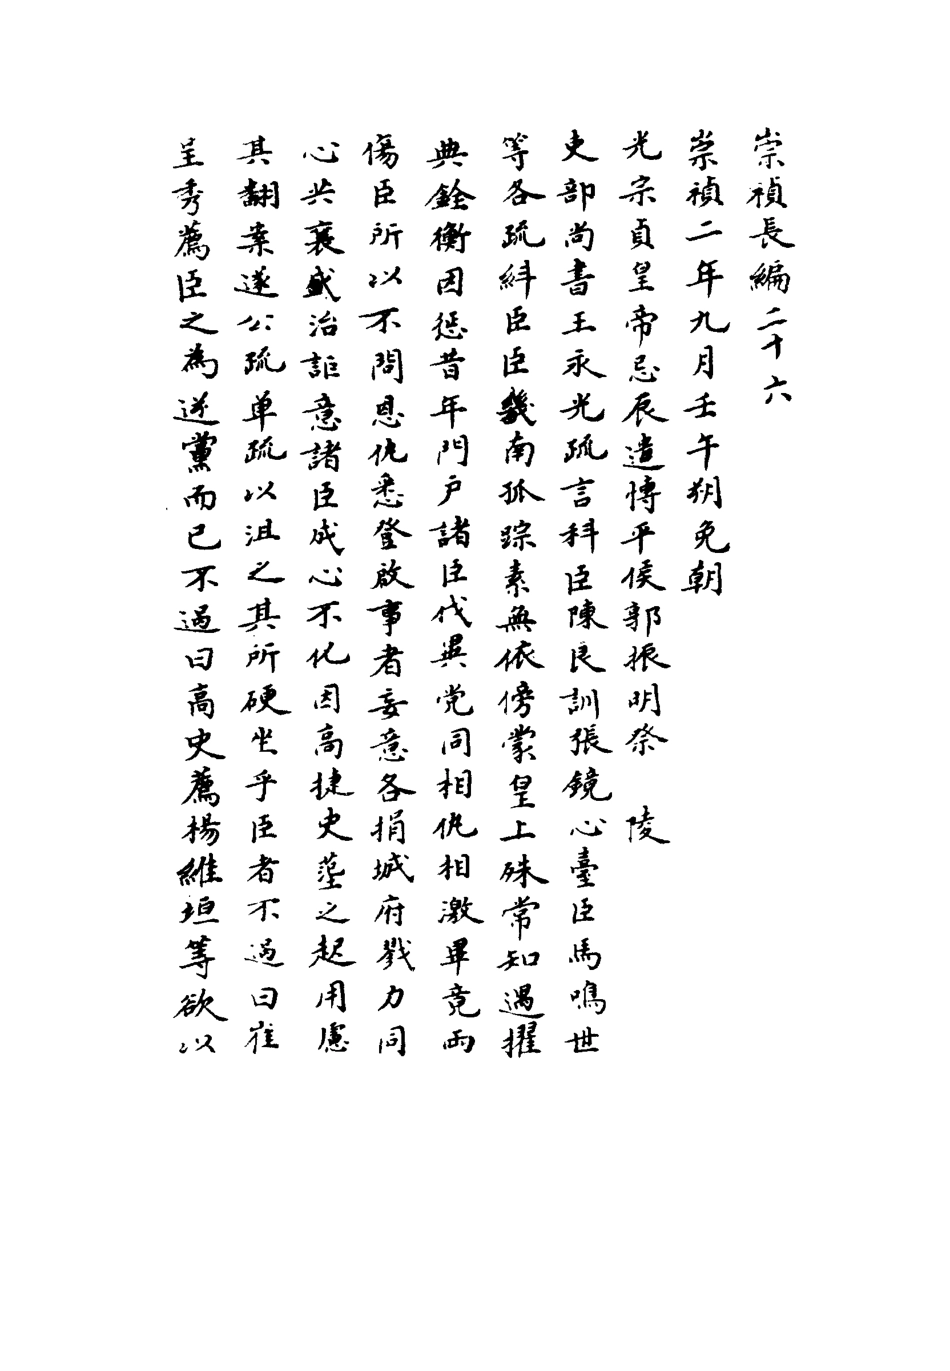 崇禎長編二十六
崇禎二年九月壬午朔免朝
光宗貞皇帝忌辰遣博平侯郭振明祭　陵
吏部尚書王永光疏言科臣陳良訓張鏡心臺臣馬鳴世
等各疏糾臣臣畿南孤踪素無依傍蒙皇上殊常知遇擢
典銓衡因惩昔年門户諸臣伐異党同相仇相激畢竟両
傷臣所以不問恩仇悉登啟事者妄意各捐城府戮力同
心共襄盛治詎意諸臣成心不化因高捷史𡐛之起用慮
其翻案遂公疏单疏以沮之其所硬坐乎臣者不過曰崔
呈秀薦臣之為逆黨而已不過曰高史薦楊維垣等欲以